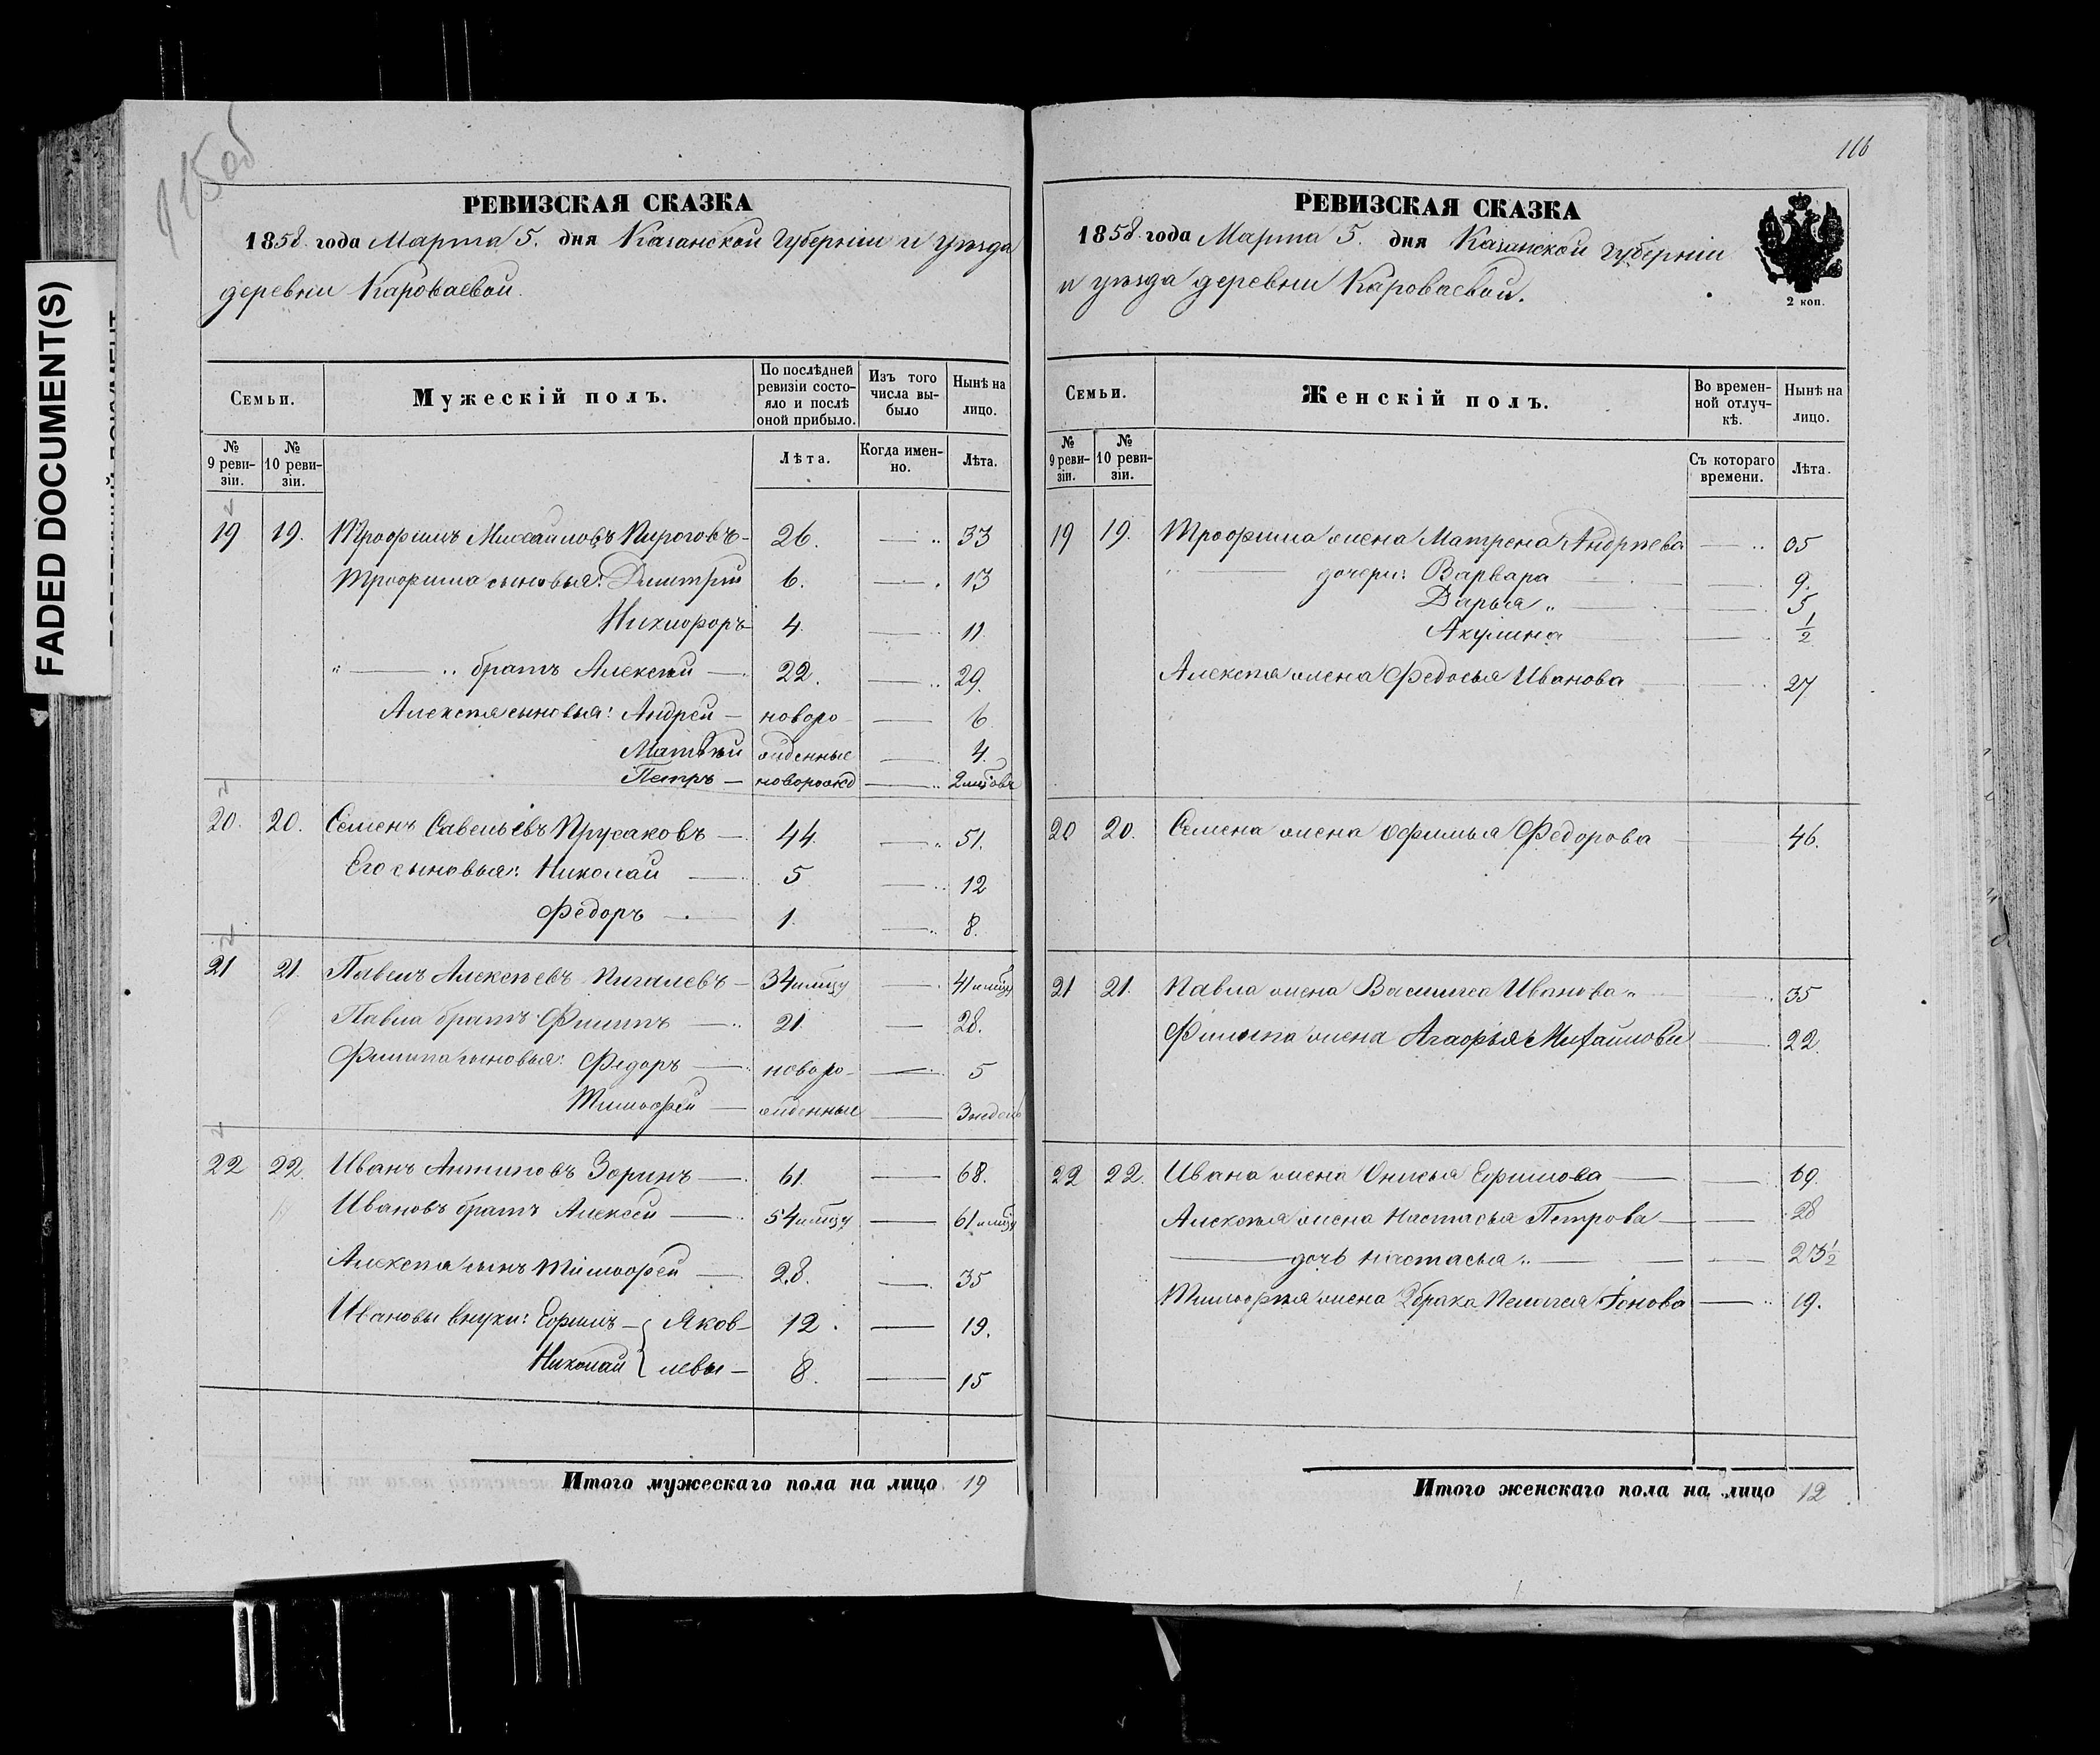 FADED DOCUMENT(S)
115об
РЕВИЗСКАЯ СКАЗКА
1858 года Марта 5. дня Казанской Губернiи и уѣзда
деревни Кароваевой.
Семьи.
Мужескiй полъ.
По послѣдней ревизiи состояло и послѣ оной прибыло.
Изъ того числа выбыло
Нынѣ на лицо.
№ 9 ревизiи.
№ 10 ревизiи.
Лѣта.
Когда именно.
Лѣта.
19 19. Трофимъ Михайловъ Пироговъ - 26. — 33
Трофима сыновья: Дмитрiй 6. — 13
Никифоръ 4. — 11
" — " братъ Алексѣй — 22. — 29.
Алексѣя сыновья: Андрей — новоро- — 6
Матвѣй жденные — 4.
Петръ — новорожд — 2 мѣсовъ
20. 20. Семенъ Савельевъ Прусаковъ — 44. — 51.
Его сыновья: Николай — 5 — 12
Федоръ — 1. — 8.
21 21. Павелъ Алексѣевъ Пигалевъ — 34 — 41
Павла братъ Филипъ — 21. — 28.
Филипа сыновья: Федоръ — новоро- — 5
Тимофей — жденные — 3 недель
22 22. Иванъ Антиповъ Зоринъ — 61. — 68.
Ивановъ братъ Алексей — 54 — 61
Алексѣя сынъ Тимофей — 28. — 35
Ивановы внуки: Ефимъ — { Яков- 12. — 19.
Николай } левы — 8. — 15
Итого мужескаго пола на лицо 19
116
РЕВИЗСКАЯ СКАЗКА
1858 года Марта 5. дня Казанской Губернiи
и уѣзда деревни Кароваевой.
2 коп.
Семьи.
Женскiй полъ.
Во временной отлучкѣ.
Нынѣ на лицо.
№ 9 ревизiи.
№ 10 ревизiи.
Съ котораго времени.
Лѣта.
19 19. Трофима жена Матрена Андрѣева — 35
— дочери: Варвара — 9.
Дарья " — 5
Акулина — 1/2
Алексѣя жена Федосья Иванова — 27
20 20. Семена жена Офимья Федорова — 46.
21 21. Павла жена Василиса Иванова " — 35
Филипа жена Агафья Михайлова — 22.
22 22. Ивана жена Онисья Ефимова — 69.
Алексѣя жена Настасья Петрова — 28
— дочь Настасья " —
Тимофѣя жена 2 брака Пелагея Iонова — 19.
Итого женскаго пола на лицо 12